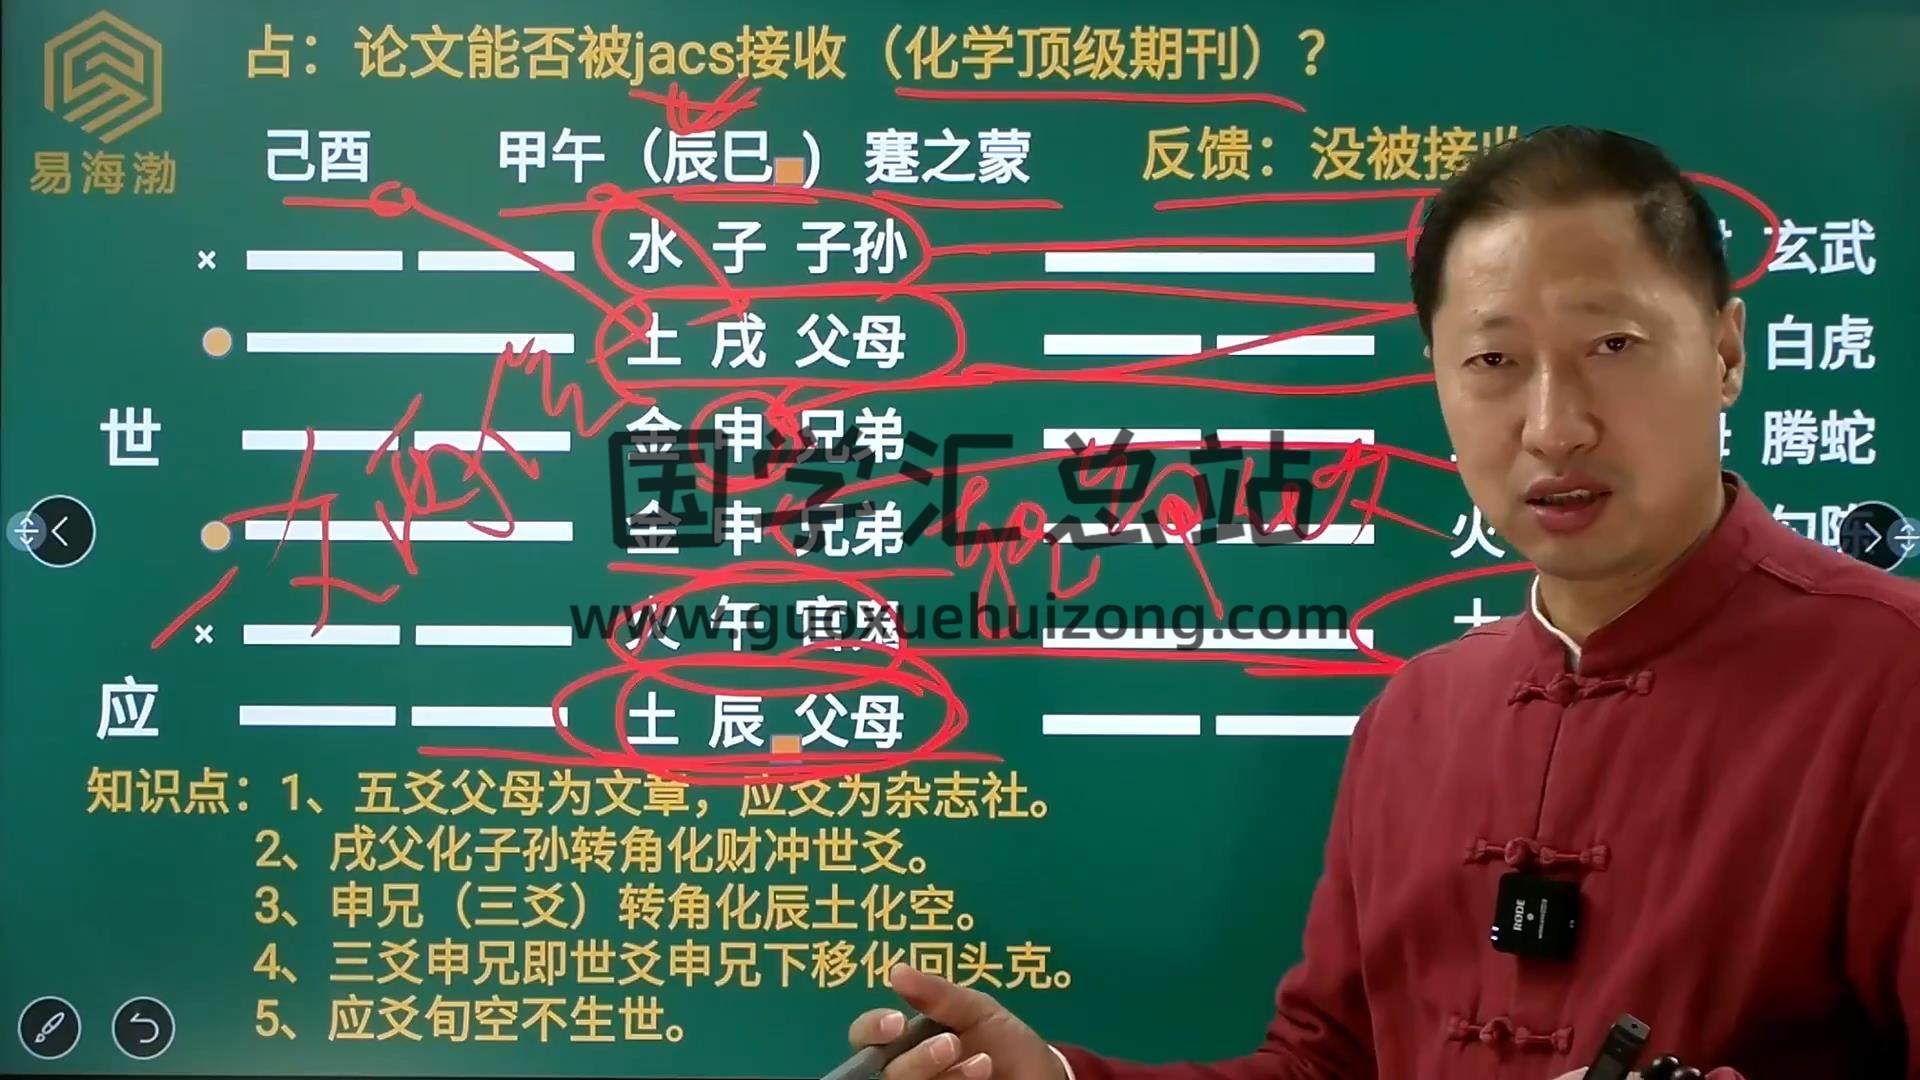 占：论文能否被jacs接收（化学顶级期刊）？
易海渤
己酉 甲午（辰巳 ） 蹇之蒙 反馈：没被接收
× 水 子 子孙 玄武
土 戌 父母 白虎
世 金 申 兄弟 腾蛇
国学汇总站
金 申 兄弟 火 勾陈
www.guoxuehuizong.com
× 火 午 官鬼 土
应 土 辰 父母
知识点：1、五爻父母为文章，应爻为杂志社。
2、戌父化子孙转角化财冲世爻。
3、申兄（三爻）转角化辰土化空。
4、三爻申兄即世爻申兄下移化回头克。
5、应爻旬空不生世。
RODE